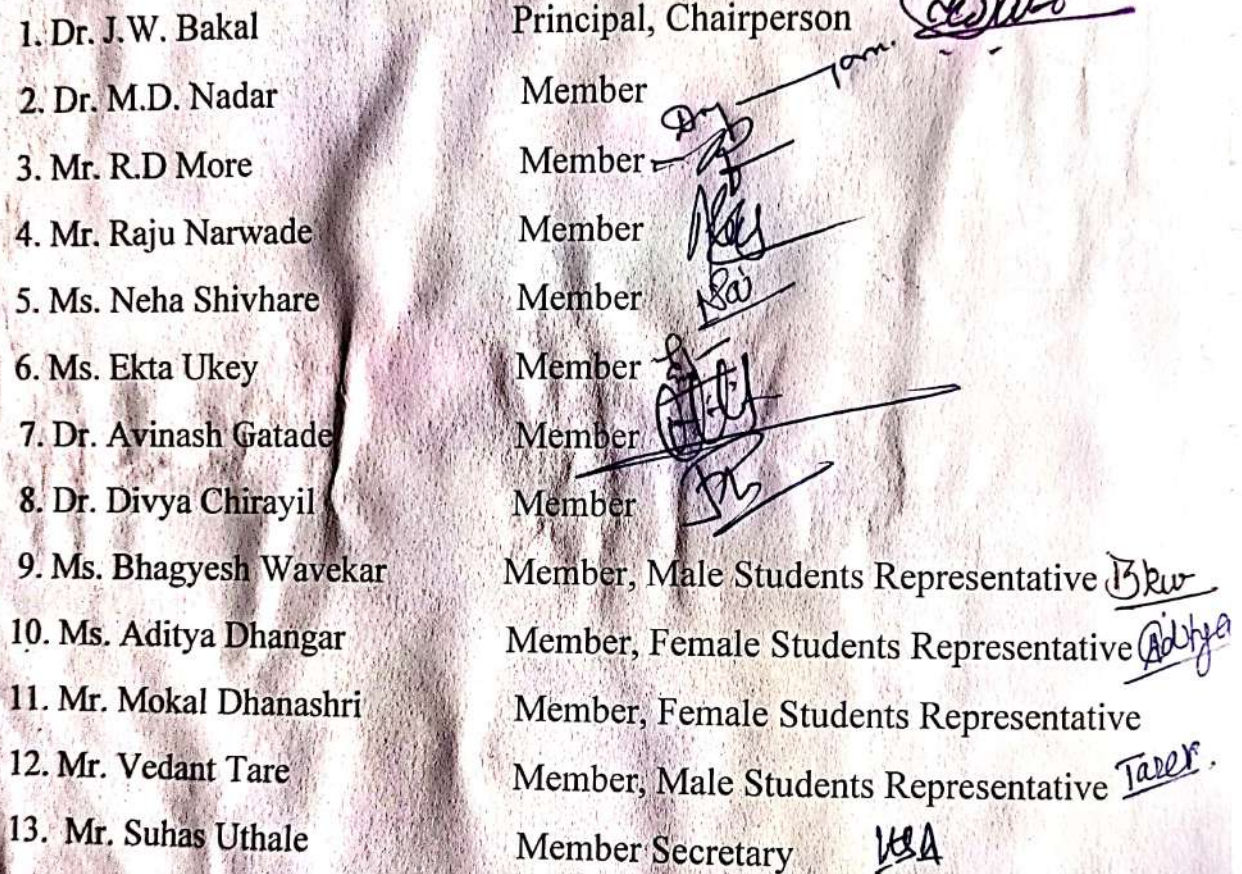 1. Dr. J.W. Bakal Principal, Chairperson
2. Dr. M.D. Nadar Member
3. Mr. R.D More Member
4. Mr. Raju Narwade Member
5. Ms. Neha Shivhare Member
6. Ms. Ekta Ukey Member
7. Dr. Avinash Gatade Member
8. Dr. Divya Chirayil Member
9. Ms. Bhagyesh Wavekar Member, Male Students Representative
10. Ms. Aditya Dhangar Member, Female Students Representative Aditya
11. Mr. Mokal Dhanashri Member, Female Students Representative
12. Mr. Vedant Tare Member, Male Students Representative
13. Mr. Suhas Uthale Member Secretary